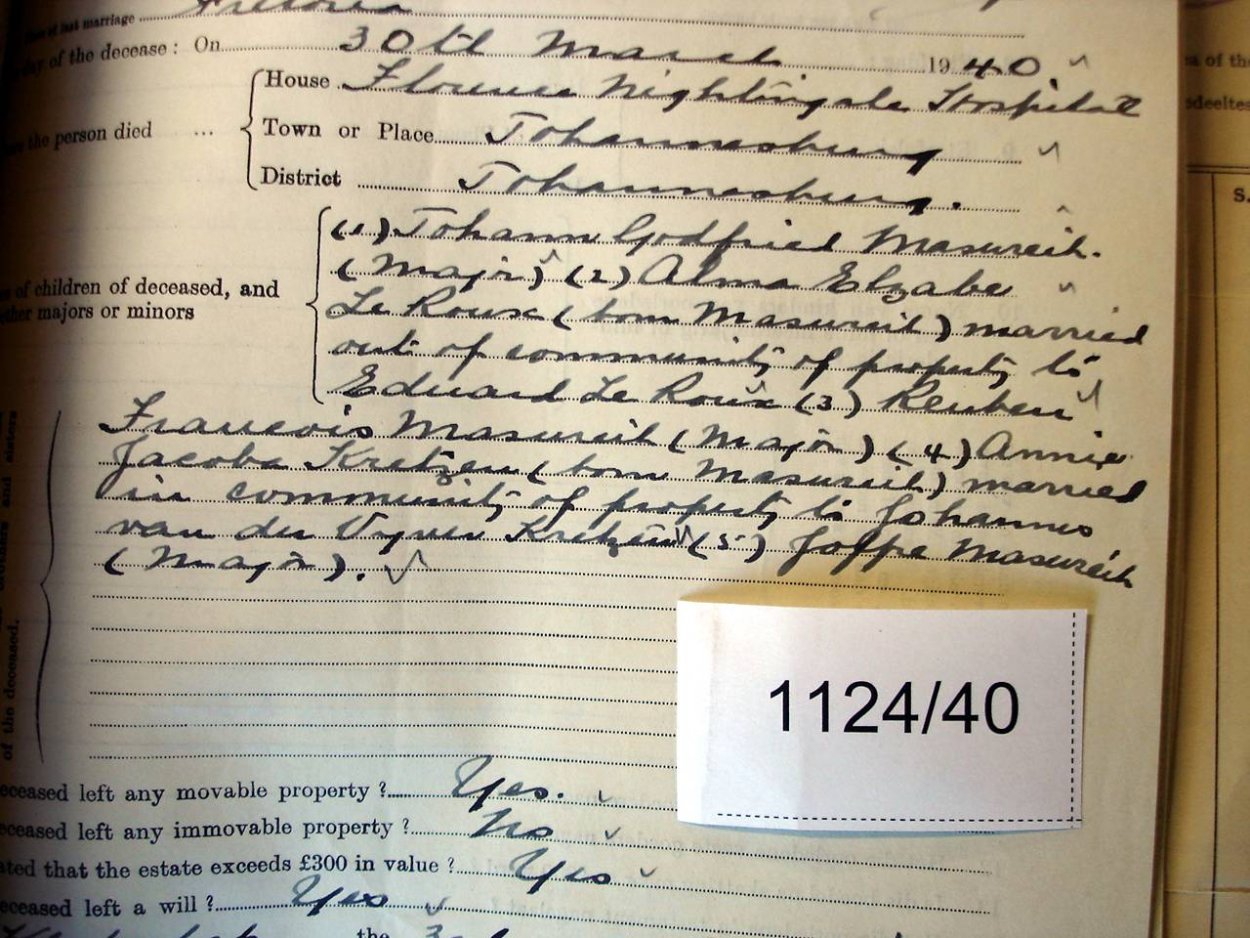 of last marriage Pretoria
day of the decease: On 30th March 1940.
House Florence Nightingale Hospital
the person died ... Town or Place Johannesburg
District Johannesburg.
(1) Johann Godfried Masureik.
(Major) (2) Alma Elzabe
of children of deceased, and Le Roux (born Masureik) married
majors or minors out of community of property to
Eduard Le Roux (3) Reuben
Francois Masureik (Major) (4) Annie
Jacoba Kretzen (born Masureik) married
in community of property to Johannes
van der Vyver Kretzen (5) Joffre Masureik
(Major).
of the deceased.
1124/40
deceased left any movable property? Yes.
deceased left any immovable property? No
ted that the estate exceeds £300 in value? Yes
deceased left a will? Yes
the